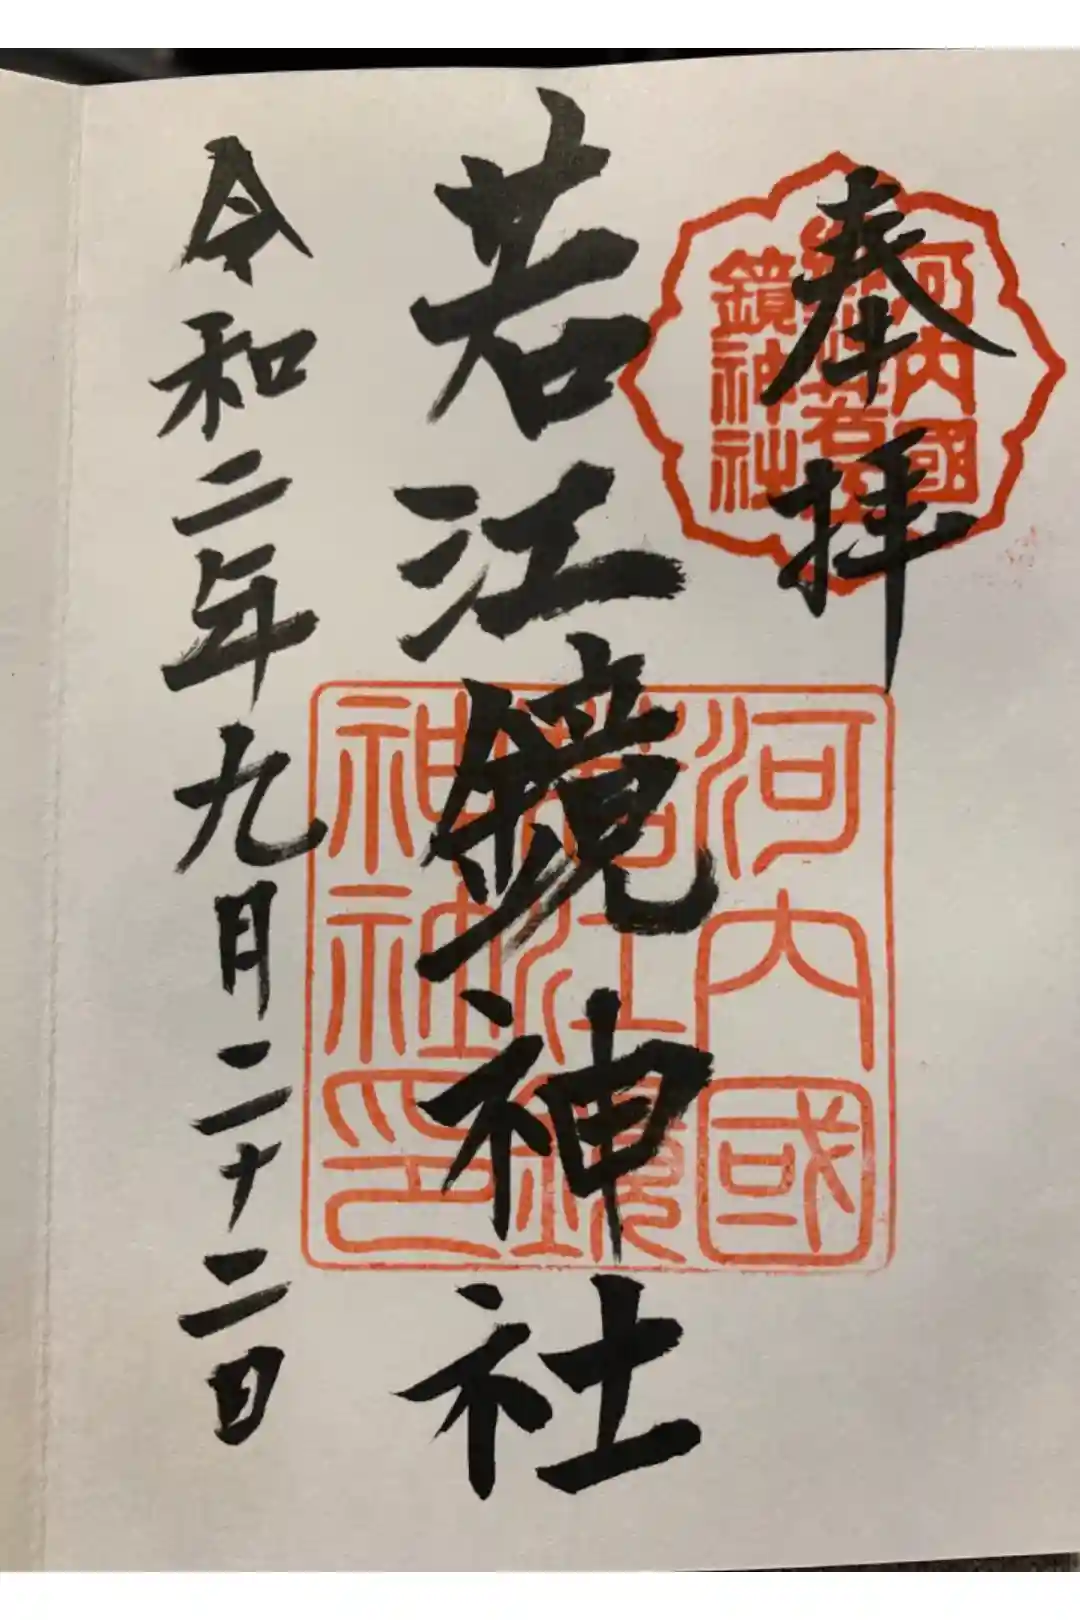 奉拝
河内國
總社若江
鏡神社
若江鏡神社
河内國
若江鏡
神社印
令和二年九月二十二日